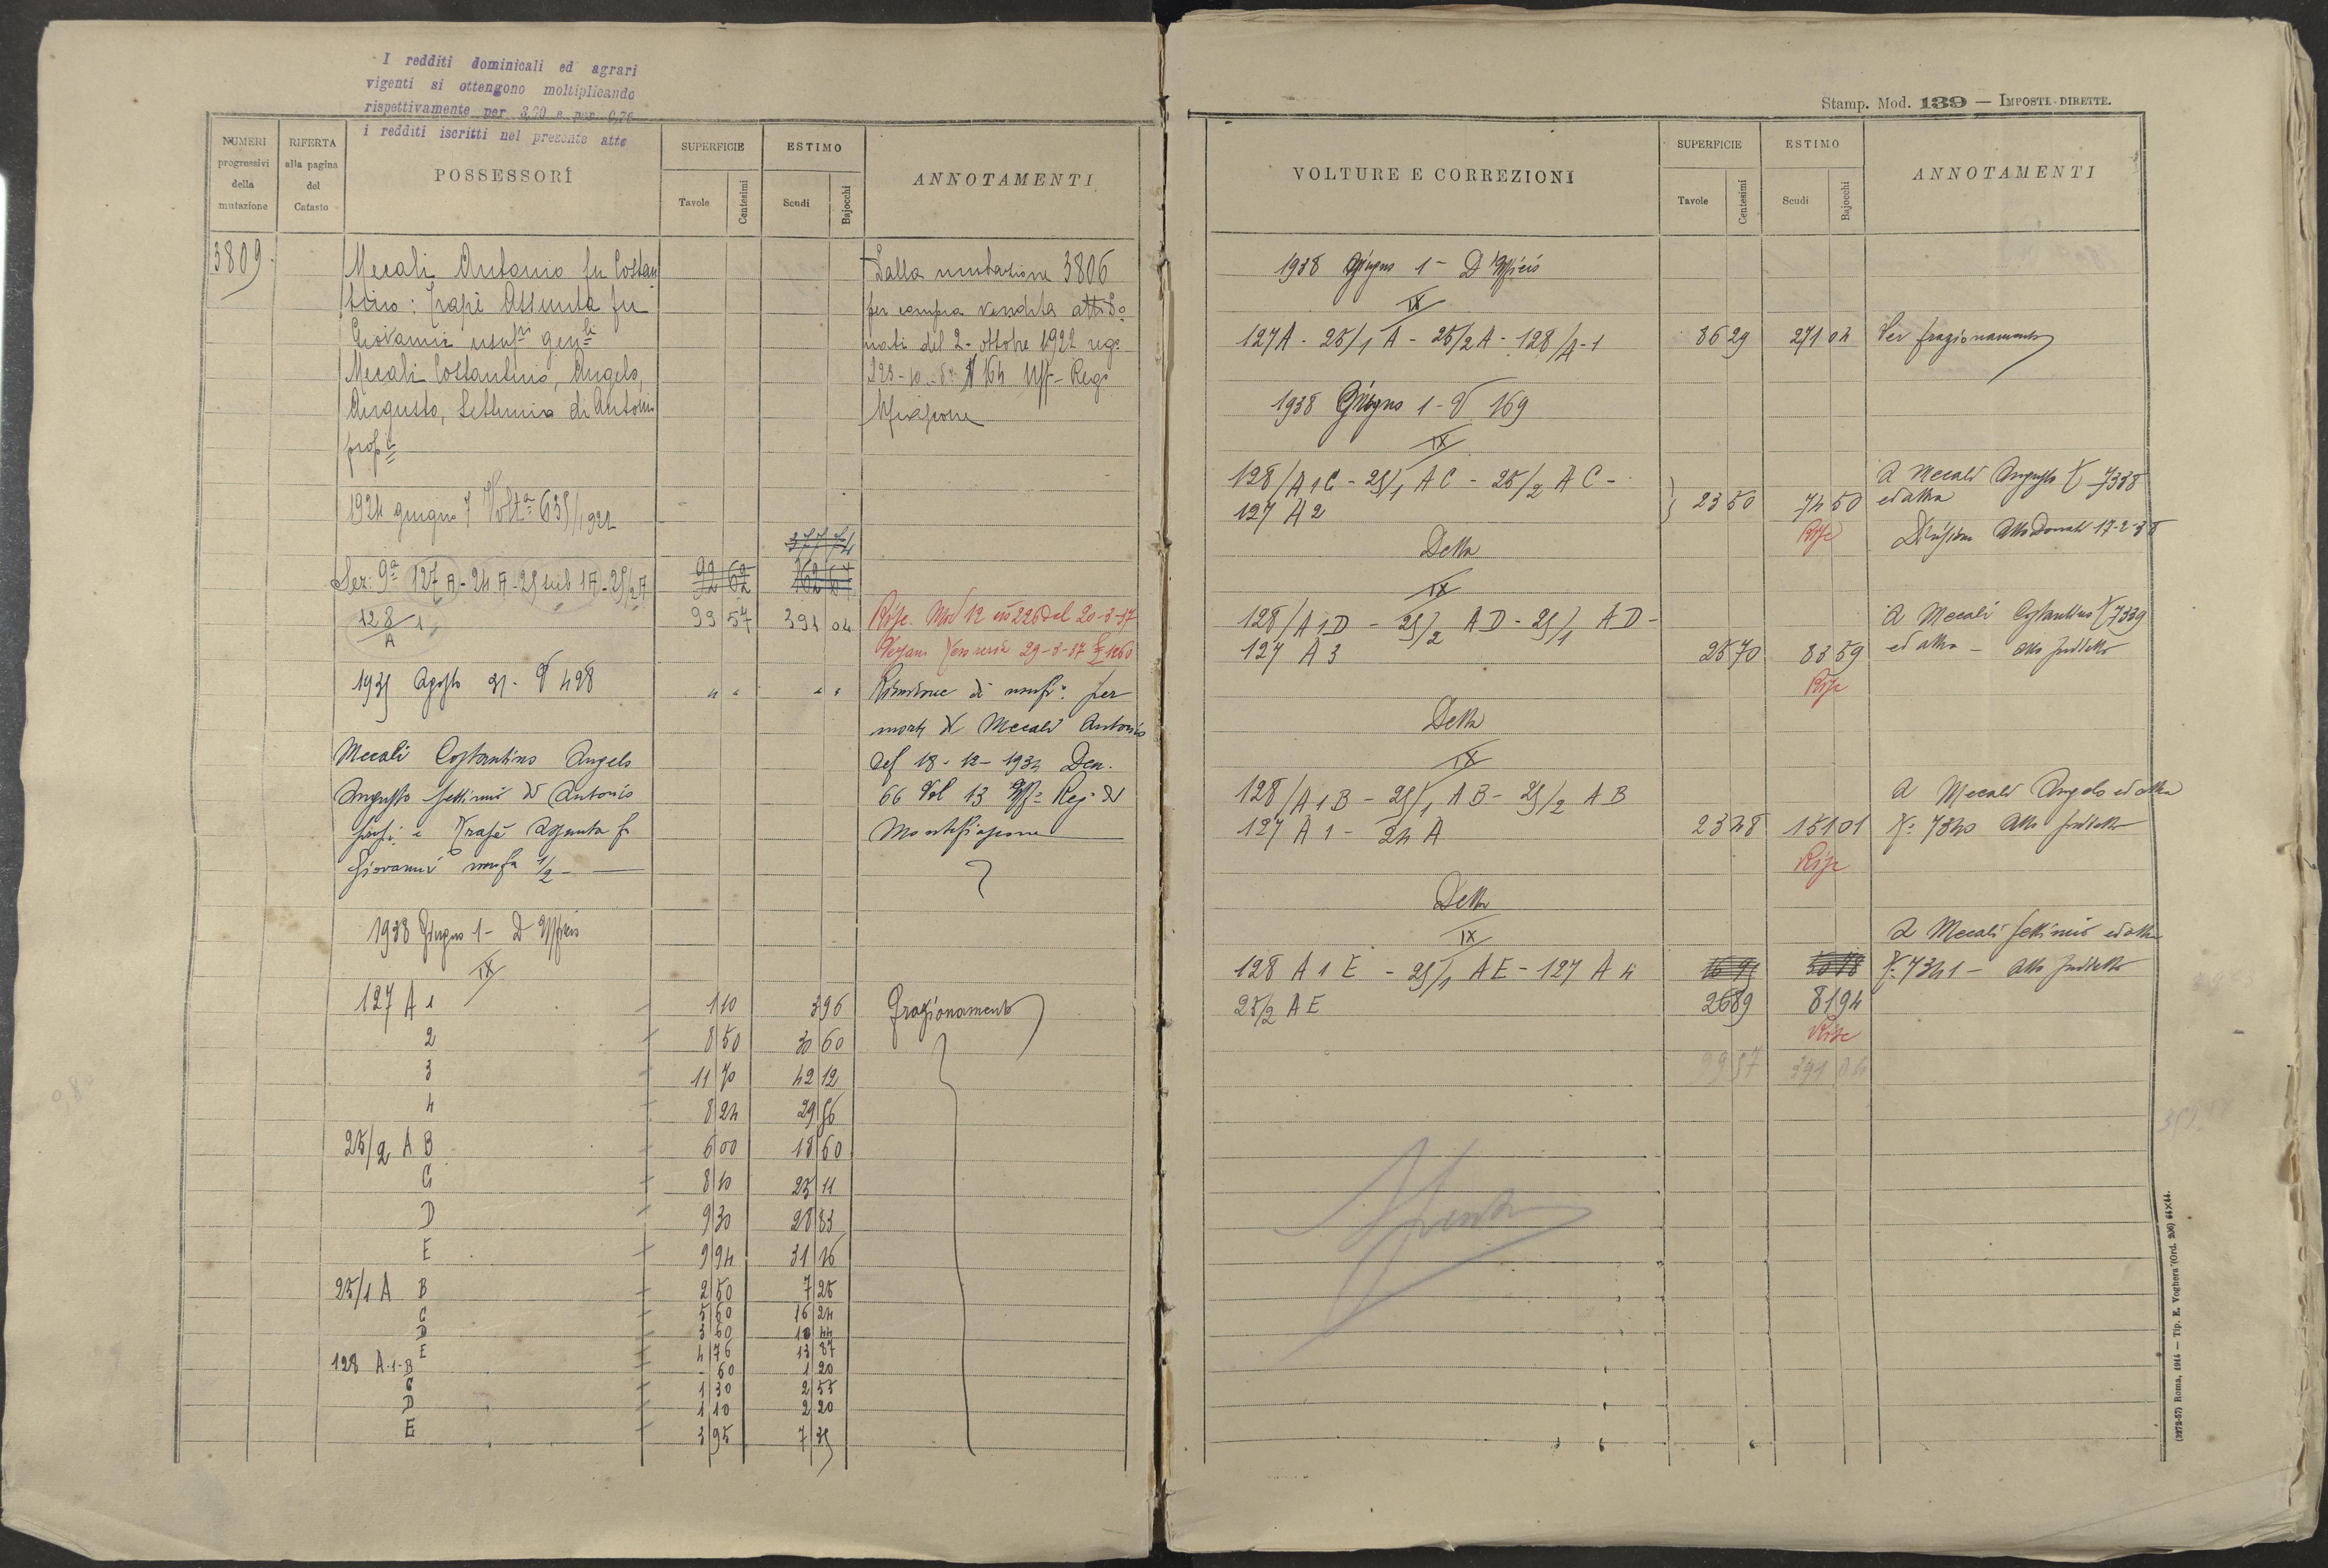 I redditi dominicali ed agrari
vigenti si ottengono moltiplicando
rispettivamente per 3,20 e per 0,75
i redditi iscritti nel presente atto
NUMERI progressivi della mutazione
RIFERTA alla pagina del Catasto
POSSESSORI
SUPERFICIE
Tavole Centesimi
ESTIMO
Scudi Bajocchi
ANNOTAMENTI
3809
Mecali Antonio fu Costan
tino: Trapè Assunta fu
Giovanni usuf.ri gen.li
Mecali Costantino, Angelo,
Augusto, Settimia di Antonio
prop.i
Dalla mutazione 3806
per compra vendita atti Do
nati del 2 ottobre 1922
164 Uff. Reg.
1924 giugno 7 Volt.a 635/1924
377 74
Sez: 9a 127 A - 24 A - 25 sub 1A - 25/2 A 92 62
128/A 1 99 57 391 04
Mod 12 226 del 20-3-37
29-3-37
1935 Agosto 31 - V 428 " " " "
Riunione di usuf.o per
morte di Mecali Antonio
del 18-12-1934 Den.
66 Vol 13 Uff. Reg. di
Montefiascone
Mecali Costantino Angelo
Augusto Settimio di Antonio
prop.i e Trapè Assunta fu
Giovanni usuf.a 1/2
1938 Giugno 1 - D'Ufficio
IX
127 A 1 1 10 3 96 Frazionamento
2 8 50 30 60
3 11 70 42 12
4 8 24 29 66
25/2 A B 6 00 18 60
C 8 10 25 11
D 9 30 28 83
E 9 94 31 16
25/1 A B 2 50 7 25
C 5 60 16 24
D 3 60 10 44
E 4 76 13 87
128 A-1-B - 60 1 20
C 1 30 2 55
D 1 10 2 20
E 3 95 7 35
Stamp. Mod. 139 — IMPOSTE DIRETTE.
VOLTURE E CORREZIONI
SUPERFICIE
Tavole Centesimi
ESTIMO
Scudi Bajocchi
ANNOTAMENTI
1938 Giugno 1 - D'Ufficio
IX
127 A - 25/1 A - 25/2 A - 128/A-1 86 29 271 04 Per frazionamento
1938 Giugno 1 - V 169
IX
128/A 1 C - 25/1 AC - 25/2 AC -
127 A 2 23 50 74 50
A Mecali Augusto 7338
ed altra
Rife
Divisione Atto Donati 17-2-38
Detta
IX
128/A 1 D - 25/2 AD - 25/1 AD -
127 A 3 25 70 83 59
A Mecali Costantino 7339
ed altra - Atto suddetto
Rife
Detta
IX
128/A 1 B - 25/1 AB - 25/2 AB
127 A 1 - 24 A 23 48 151 01
A Mecali Angelo ed altra
7340 Atto suddetto
Rife
Detta
IX
128 A 1 E - 25/1 AE - 127 A 4
A Mecali Settimio ed altra
7341 - Atto suddetto
25/2 AE 26 89 81 94
Rife
99 57 291 04
Spenta
(3272-57) Roma, 1914 — Tip. E. Voghera (Ord. 206) 64×44.